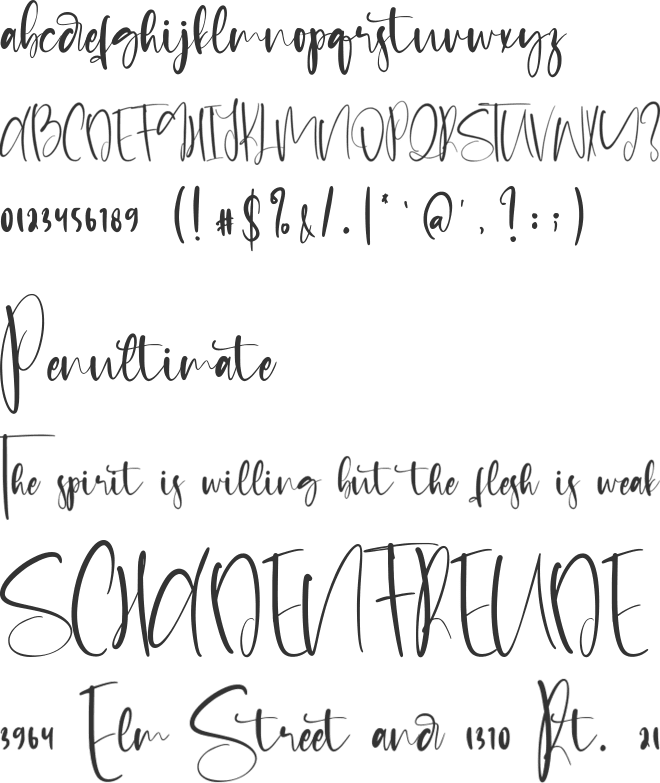 abcdefghijklmnopqrstuvwxyz
ABCDEFGHIJKLMNOPQRSTUVWXYZ
0123456789 (!#$%&/.|*`@',?:;)
Penultimate
The spirit is willing but the flesh is weak
SCHADENFREUDE
3964 Elm Street and 1370 Rt. 21